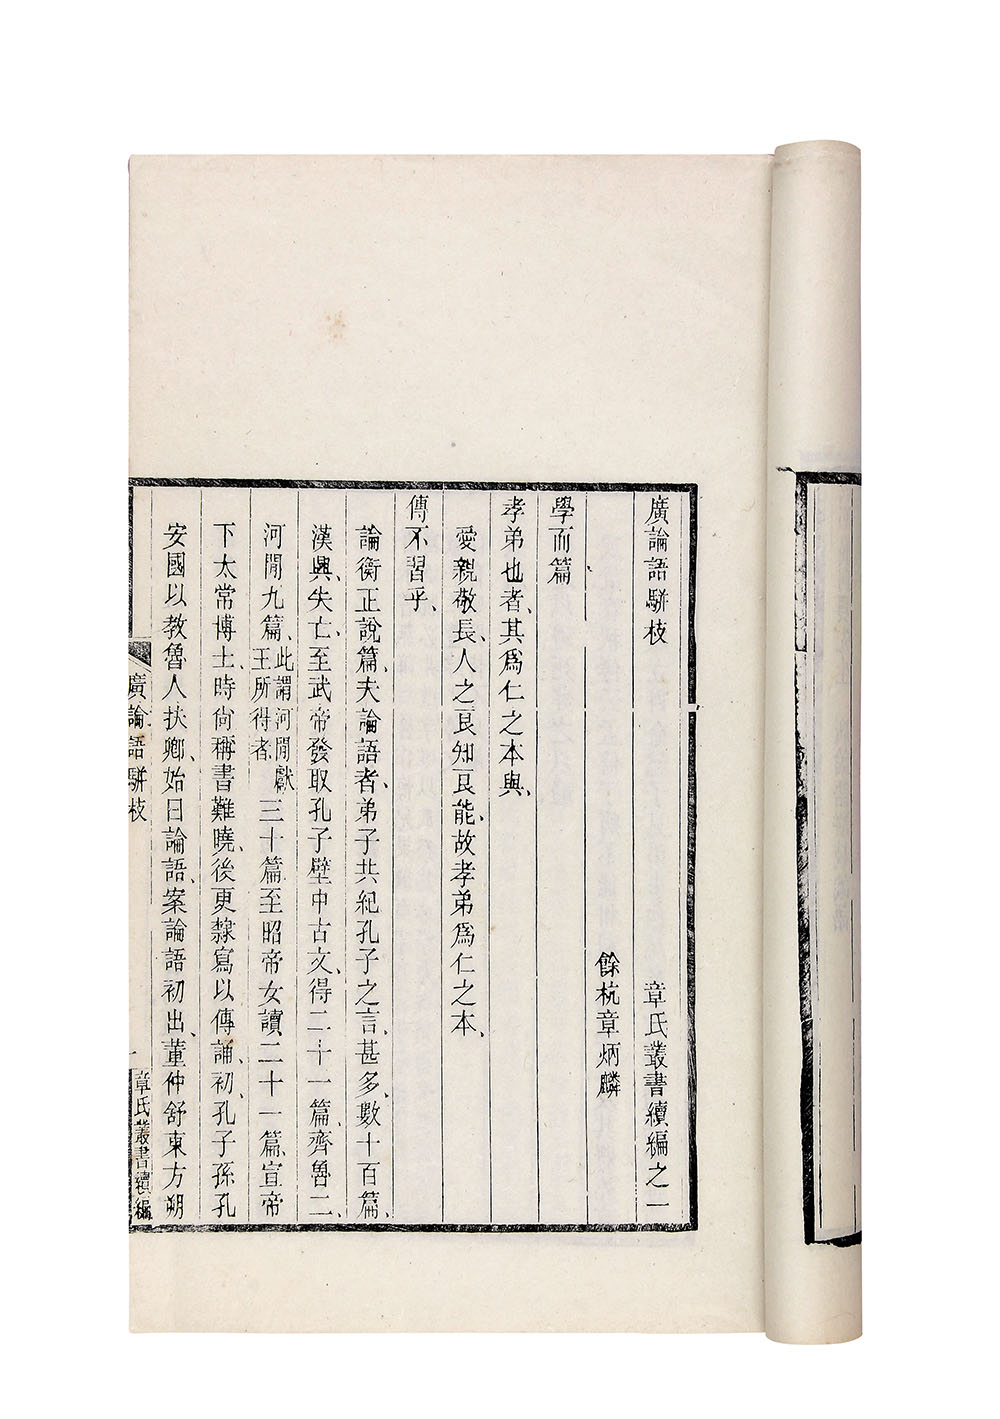 廣論語駢枝　章氏叢書續編之一
餘杭章炳麟
學而篇
孝弟也者、其爲仁之本與、
愛親敬長、人之良知良能、故孝弟爲仁之本、
傳不習乎、
論衡正說篇、夫論語者、弟子共紀孔子之言、甚多、數十百篇、
漢興、失亡、至武帝發取孔子壁中古文、得二十一篇、齊魯二、
河閒九篇、此謂河閒獻王所得者三十篇至昭帝女讀二十一篇、宣帝
下太常博士、時尙稱書難曉、後更隸寫以傳誦、初、孔子孫孔
安國以教魯人扶卿、始曰論語、案論語初出、董仲舒東方朔
廣論語駢枝　一　章氏叢書續編